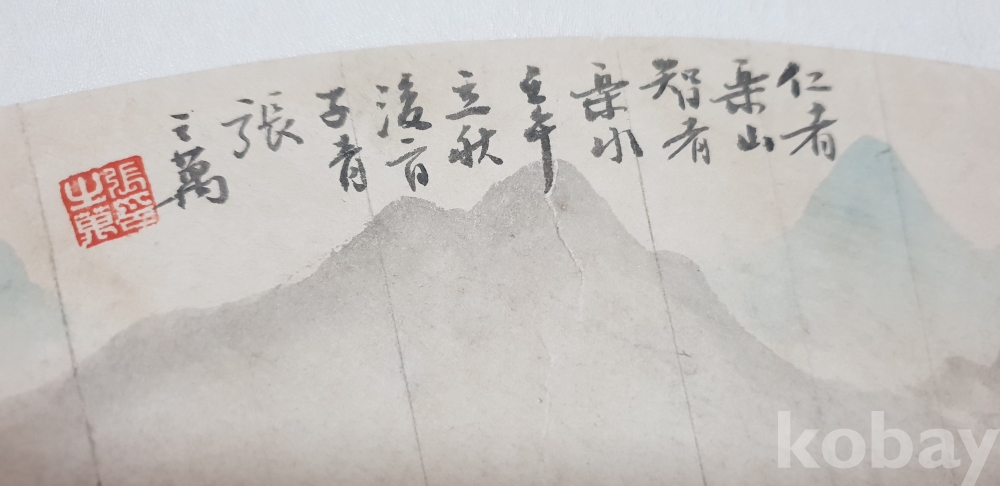 仁者
樂山
智者
樂水
壬午
立秋
後一日
子青
張
之萬
張印
之萬
kobay